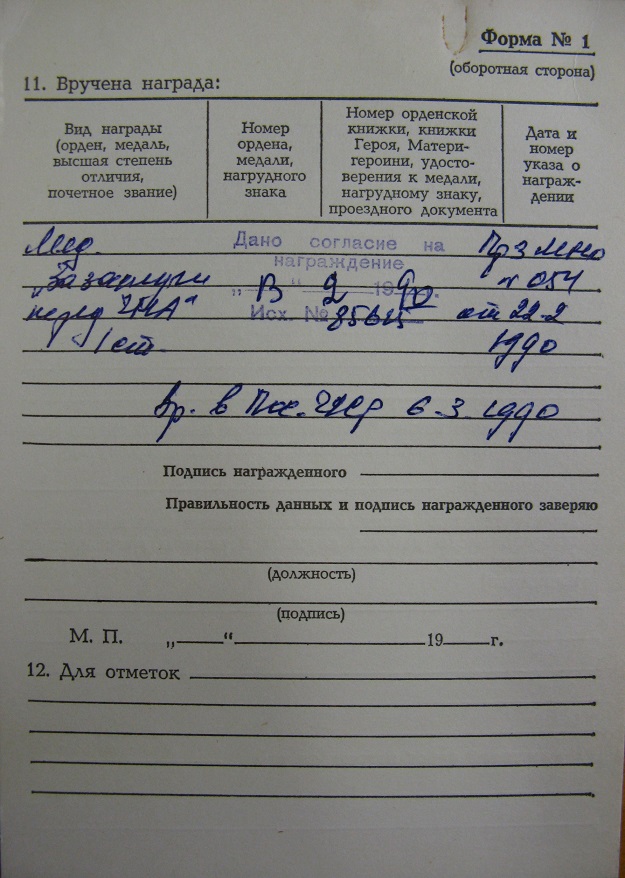 Форма № 1
(оборотная сторона)
11. Вручена награда:
Вид награды
(орден, медаль,
высшая степень
отличия,
почетное звание)
Номер
ордена,
медали,
нагрудного
знака
Номер орденской
книжки, книжки
Героя, Матери-
героини, удосто-
верения к медали,
нагрудному знаку,
проездного документа
Дата и
номер
указа о
награж-
дении
Мед.
„За заслуги
перед ЧНА“
1 ст.
Дано согласие на
награждение
2 1990
Исх. №
Пр з МНО
№ 054
от 22.2
1990
Вр. в Пос. ЧСФР 6.3.1990
Подпись награжденного
Правильность данных и подпись награжденного заверяю
(должность)
(подпись)
М. П. „ “ 19 г.
12. Для отметок